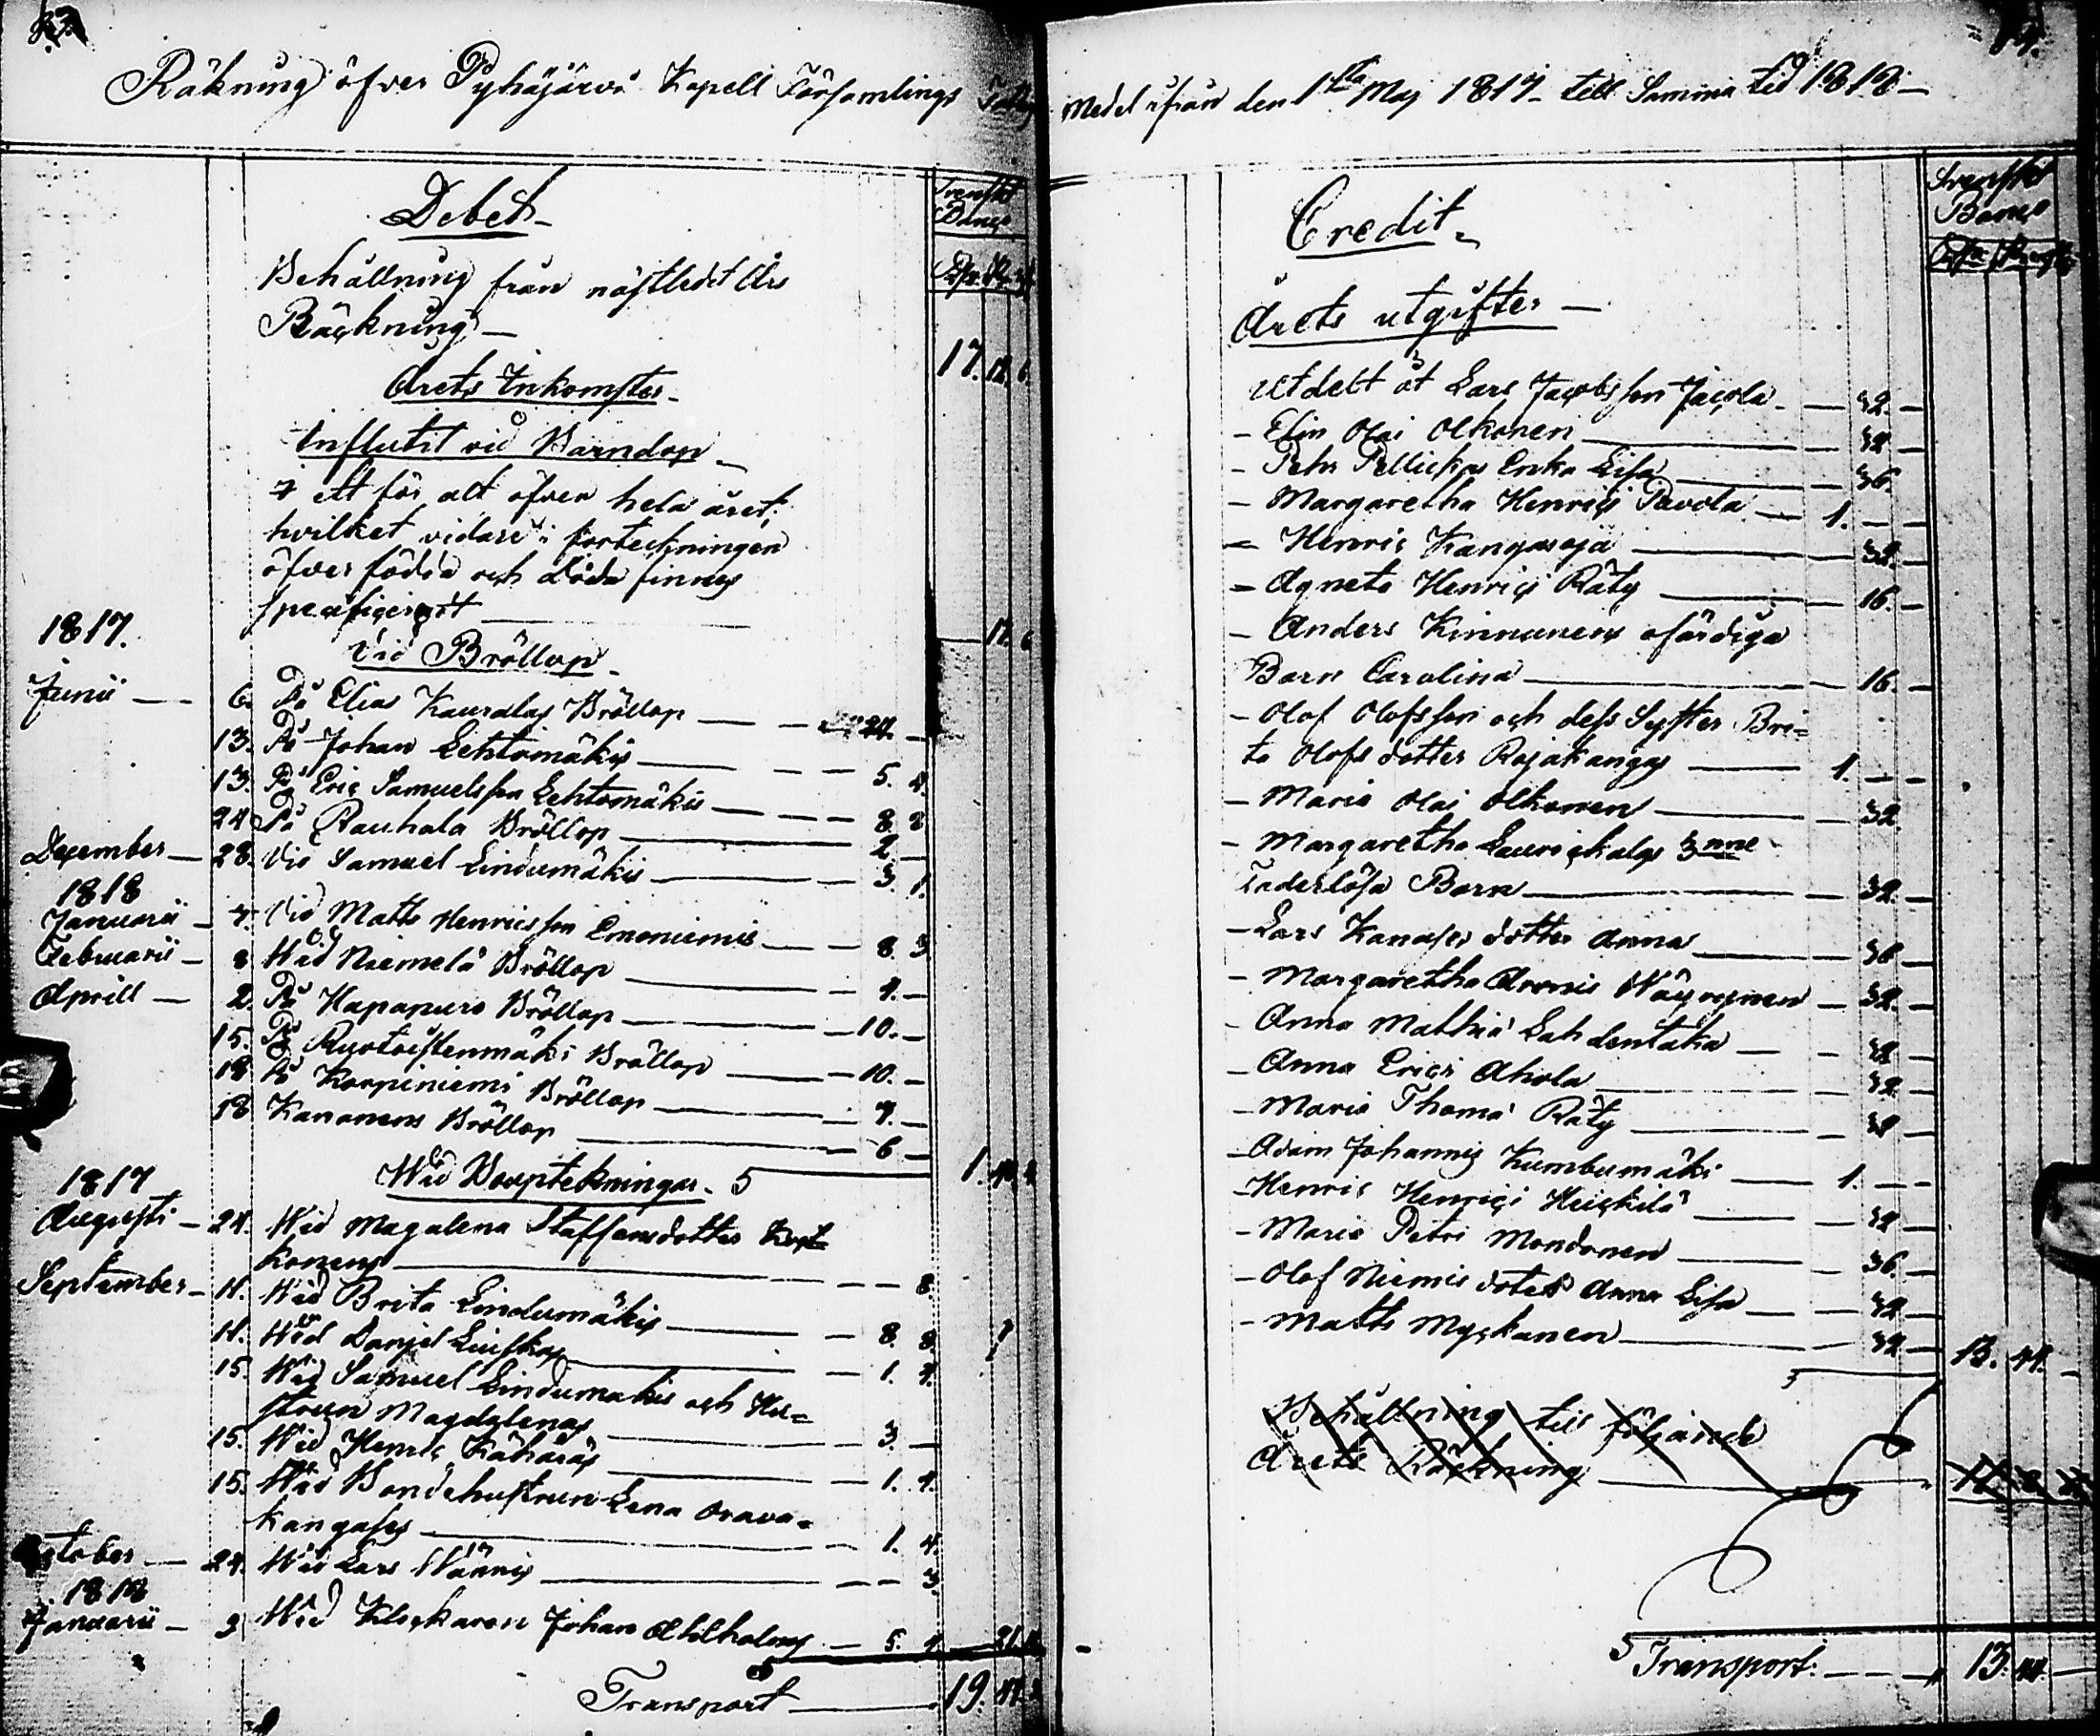 Räkning öfver Pyhäjärvi Kapell Församlings
Debet
Svenskt
Banco
Behållning från nästledit Års
Räckning — 17. 12. 6.
Årets Inkomster
Influtit vid Barndop
i ett för alt öfver hela året,
hvilket vidare i förteckningen
öfver födda och döda finnes
specificerat — 12. 6
1817.
Vid Bröllop
Junii — 6. På Elias Kauralas Bröllop — 24. —
13. På Johan Lehtomäkis — 5. 4.
13. På Eric Samuelsson Lehtomäkis — 8. 8
24 På Rauhala Bröllop — 2 —
December — 28. Vid Samuel Lindumäkis — 3 1.
1818
Januarii — 7. Vid Matts Henricsson Emoniemis — 8 3
Februarii — 8 Wid Niemelä Bröllop — 4. —
Aprill — 2. På Hapapuro Bröllop — 10. —
15. På Ruotoistenmäki Bröllop — 10. —
18 På Korpiniemi Bröllop — 4. —
18 Kananens Bröllop — 6 —
1.
Wid Boupteckningar.
1817
Augusti — 24. Wid Magalena Staffansdotter
konens — 8
September — 11. Wid Brita Lindumäkis — 8. 8.
11. Wid Danjel Leiskas — 1. 4.
15. Wid Samuel Lindumäkis och Hu=
struns Magdalenas — 3. —
15. Wid Henric Kähäräs — 1. 4.
15. Wid Bondehustrun Lena Orava=
kangases — 1. 4.
October — 24. Wid Lars Wännis — 3.
1818
Januarii — 9 Wid Klockaren Johan Ahlholms — 5. 4
Transport — 19.
Medel ifrån den 1sta Maj 1817 till Samma tid 1818
Credit
Svenskt
Banco
Årets utgifter —
Utdelt åt Lars Jacobsson Jacola — 32. —
— Elin Olai Olkonen — 32 —
— Pehr Pellickas Enka Lisa — 36.
— Margaretha Henrici Pavola — 1. — —
— Henric Kangasoja — 32. —
— Agneta Henrici Räty — 16. —
— Anders Kinnunens ofärdiga
Barn Carolina — 16. —
— Olof Olofsson och dess Syster Bri=
ta Olofsdotter Rajakangas — 1. — —
— Maria Olai Olkonen — 32.
— Margaretha Laurickalas 3nne
Faderlösa Barn — 32. —
— Lars Kanases dotter Anna — 36 —
— Margaretha Aronis Wäyrynen — 32. —
— Anna Mathiä Lahdentaka — 32 —
— Anna Erici Ahola — 32. —
— Maria Thomä Räty — 32 —
— Adam Johannis Kumbumäki — 1. — —
— Henric Henrici Heickilä — 32 —
— Maria Petri Mondonen — 36. —
— Olof Niemis doter Anna Lisa — 32 —
— Matts Myckanen — 32 — 13. 44. —
Behållning till följande
Årets Räckning
Transport. — 13. 44. —